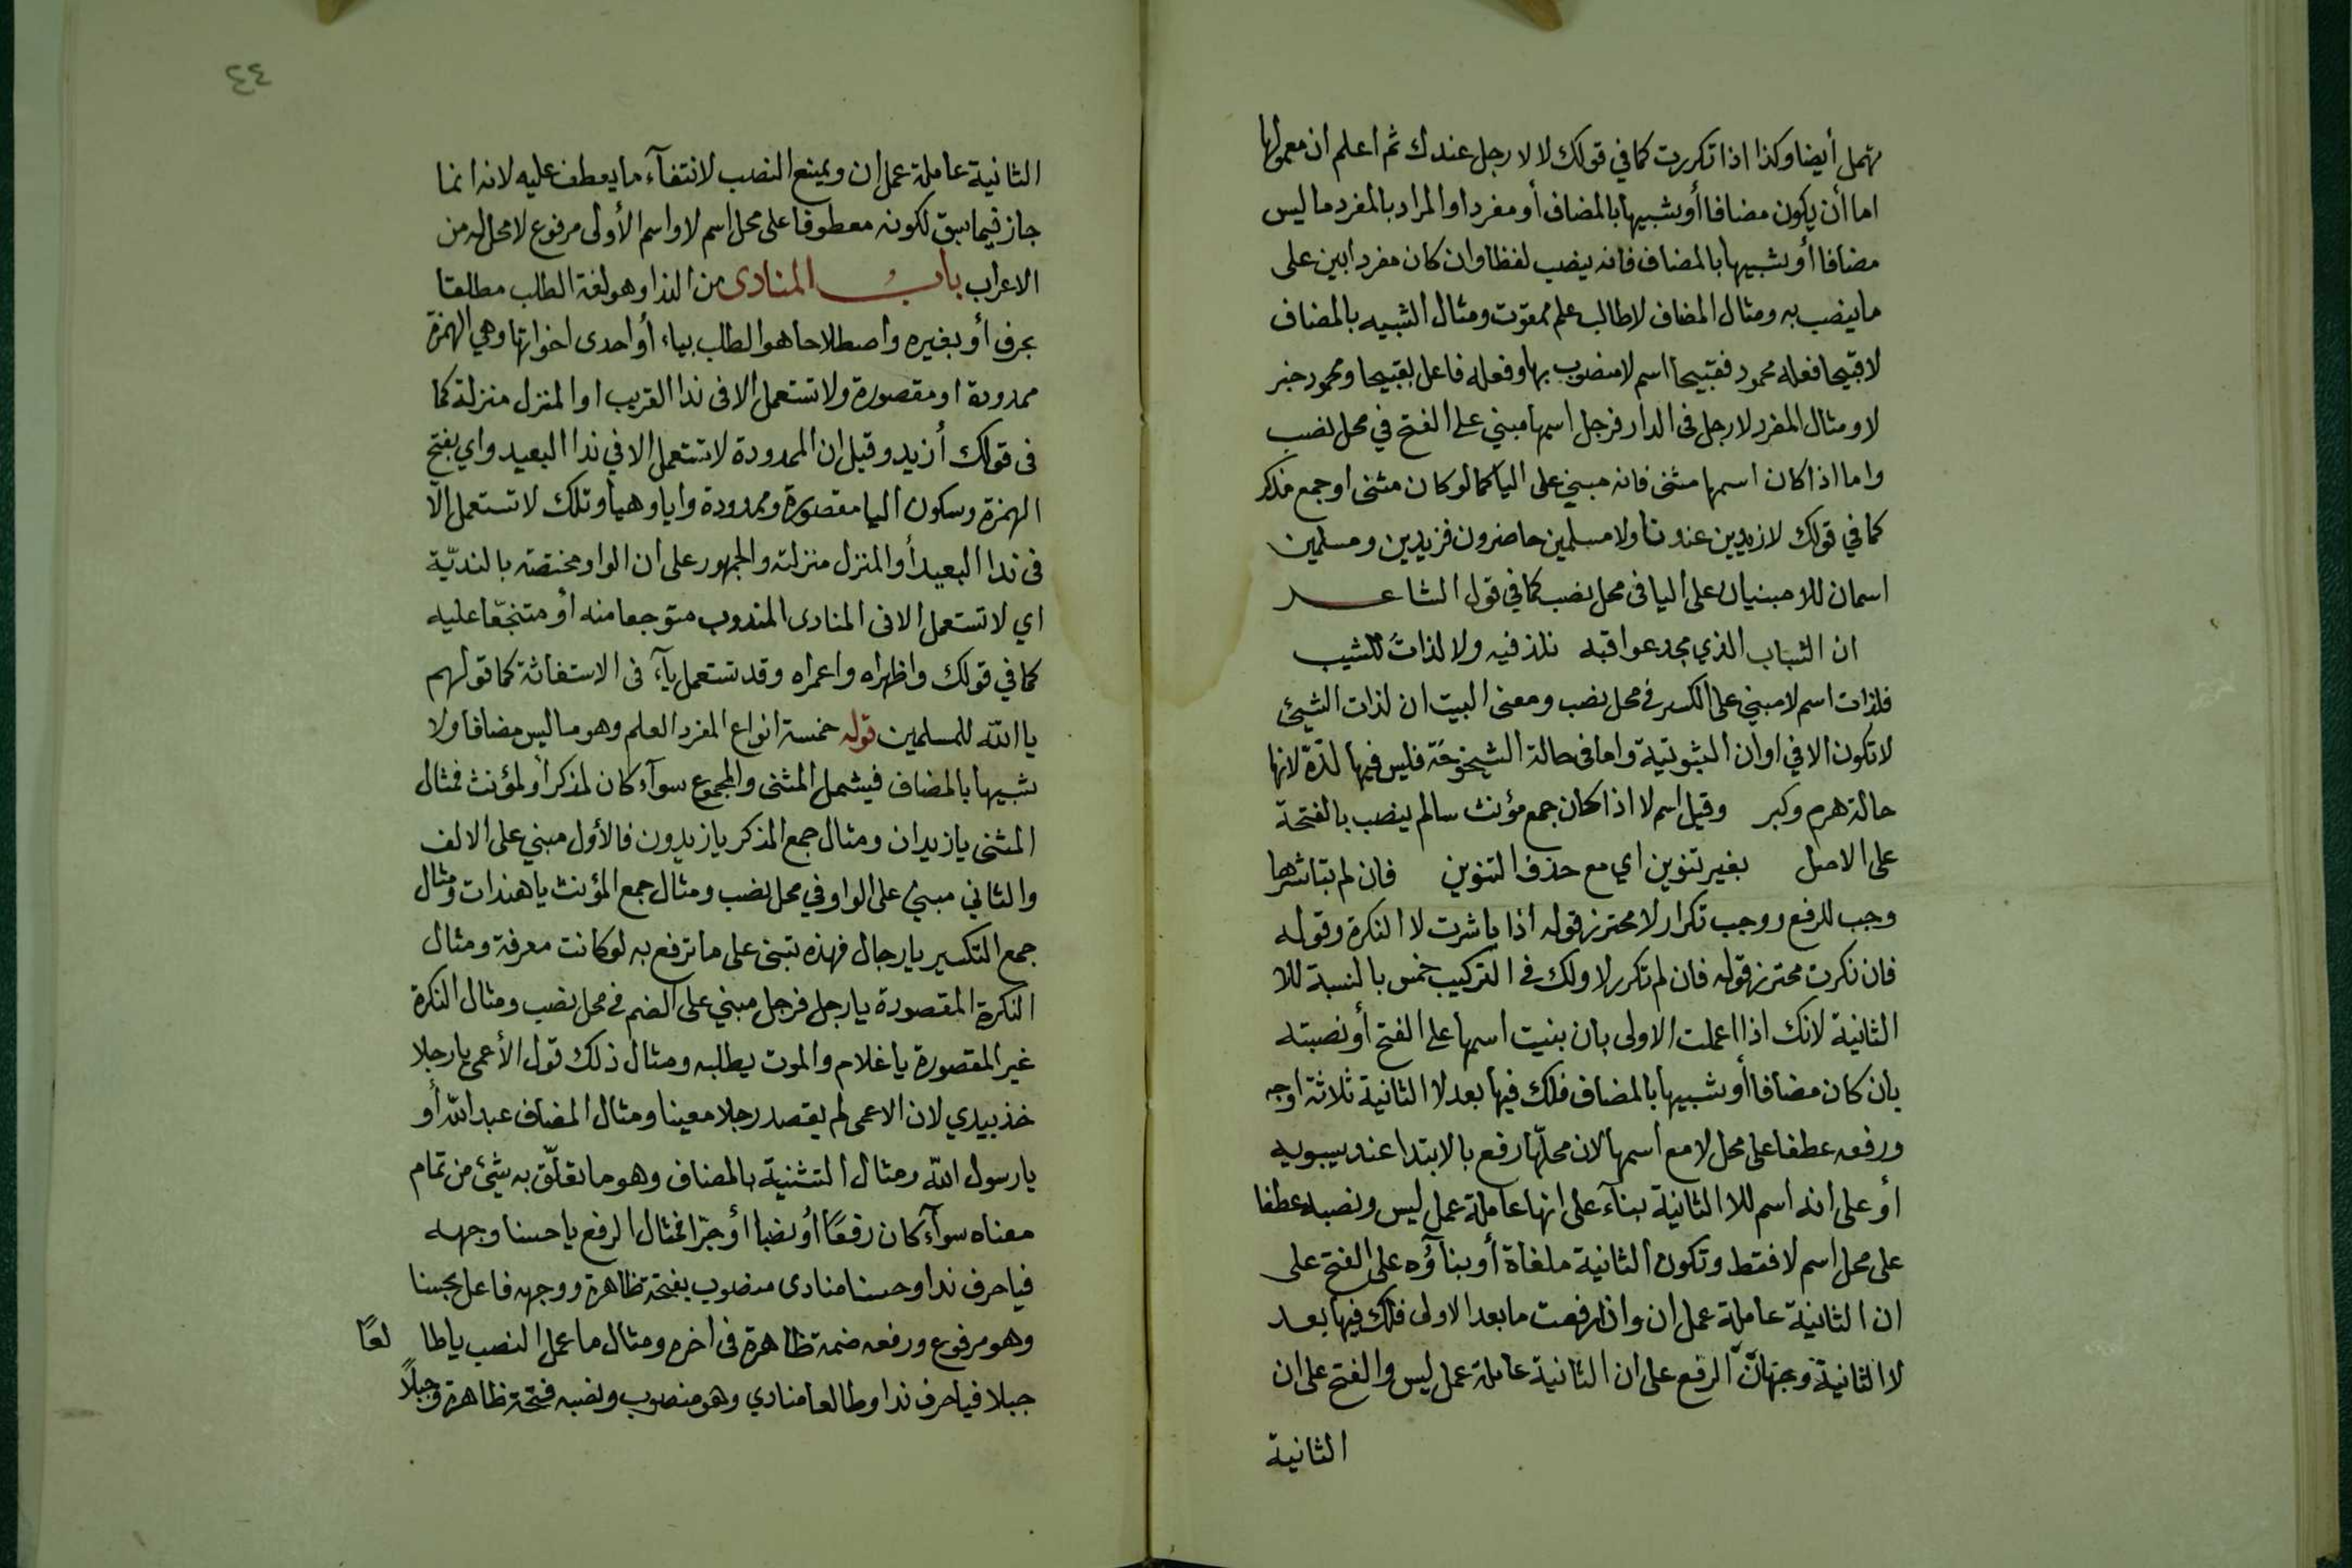 تهمل أيضا وكذا اذا تكررت كما في قولك لا لا رجل عندك ثم اعلم ان معمولها
اما أن يكون مضافا أو شبيها بالمضاف أو مفردا والمراد بالمفرد ما ليس
مضافا أو شبيها بالمضاف فانه ينصب لفظا وان كان مفردا بني على
ما ينصب به ومثال المضاف لا طالب علم ممقوت ومثال الشبيه بالمضاف
لا قبيحا فعله محمود فقبيحا اسم لا منصوب بها وفعله فاعل بقبيحا ومحمود خبر
لا ومثال المفرد لا رجل في الدار فرجل اسمها مبني على الفتح في محل نصب
واما اذا كان اسمها مثنى فانه مبني على اليا كما لو كان مثنى او جمع مذكر
كما في قولك لا زيدين عندنا ولا مسلمين حاضرون فزيدين ومسلمين
اسمان للا مبنيان على اليا في محل نصب كما في قول الشاعر
ان الشباب الذي مجد عواقبه نلذ فيه ولا لذات للشيب
فلذات اسم لا مبني على الكسر في محل نصب ومعنى البيت ان لذات الشيئ
لا تكون الا في اوان الشبوبية واما في حالة الشيخوخة فليس فيها لذة لانها
حالة هرم وكبر وقيل اسم لا اذا كان جمع مؤنث سالم ينصب بالفتحة
على الاصل بغير تنوين اي مع حذف التنوين فان لم تباشرها
وجب الرفع ووجب تكرار لا محترز قوله اذا باشرت لا النكرة وقوله
فان نكرت محترز قوله فان لم تكرر لا ولك في التركيب خمس بالنسبة للا
الثانية لانك اذا اعملت الاولى بان بنيت اسمها على الفتح أو نصبته
بان كان مضافا أو شبيها بالمضاف فلك فيها بعد لا الثانية ثلاثة اوجه
ورفعه عطفا على محل لا مع اسمها لان محلها رفع بالابتدا عند سيبويه
أو على انه اسم للا الثانية بناء على انها عاملة عمل ليس ونصبه عطفا
على محل اسم لا فقط وتكون الثانية ملغاة أو بناؤه على الفتح على
ان الثانية عاملة عمل ان واذا رفعت ما بعد الاولى فلك فيها بعد
لا الثانية وجهان الرفع على ان الثانية عاملة عمل ليس والفتح على ان
الثانية
٤٤
الثانية عاملة عمل ان ويمنع النصب لانتفآء ما يعطف عليه لانه انما
جاز فيما سبق لكونه معطوفا على محل اسم لا واسم الأولى مرفوع لا محل له من
الاعراب باب المنادى من الندا وهو لغة الطلب مطلقا
بحرف أو بغيره واصطلاحا هو الطلب بياء أو احدى اخواتها وهي الهمزة
ممدودة او مقصورة ولا تستعمل الا في ندا القريب او المنزل منزلة كما
في قولك أزيد وقيل ان الممدودة لا تستعمل الا في ندا البعيد واي بفتح
الهمزة وسكون اليا مقصورة وممدودة وايا وهيا وتلك لا تستعمل الا
في ندا البعيد أو المنزل منزلته والجمهور على ان الوا ومختصة بالندبة
اي لا تستعمل الا في المنادى المندوب متوجعا منه أو متفجعا عليه
كما في قولك واظهراه واعمراه وقد تستعمل يآء في الاستغاثة كما قولهم
يا الله للمسلمين قوله خمسة انواع المفرد العلم وهو ما ليس مضافا ولا
شبيها بالمضاف فيشمل المثنى والمجموع سوآء كان لمذكر أو لمؤنث فمثال
المثنى يا زيدان ومثال جمع المذكر يا زيدون فالأول مبني على الالف
والثاني مبني على الواو في محل نصب ومثال جمع المؤنث يا هندات ومثال
جمع التكسير يا رجال فهذه تبنى على ما ترفع به لو كانت معرفة ومثال
النكرة المقصورة يا رجل فرجل مبني على الضم في محل نصب ومثال النكرة
غير المقصورة يا غلام والموت يطلبه ومثال ذلك قول الأعمى يا رجلا
خذ بيدي لان الاعمى لم يقصد رجلا معينا ومثال المضاف عبد الله أو
يا رسول الله ومثال التشنية بالمضاف وهو ما تعلق به شيئ من تمام
معناه سوآء كان رفعًا أو نصبا أو جرا فمثال الرفع يا حسنا وجهه
فيا حرف ندا وحسنا منادى منصوب بفتحة ظاهرة ووجهه فاعل بحسنا
وهو مرفوع ورفعه ضمة ظاهرة في اخره ومثال ما عمل النصب يا طالعًا
جبلا فيا حرف ندا وطالعا منادي وهو منصوب ونصبه فتحة ظاهرة وجبلًا